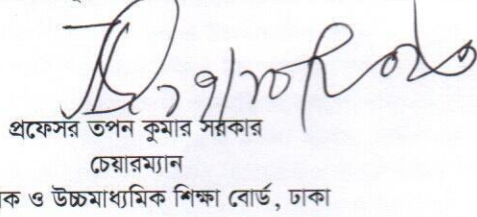 প্রফেসর তপন কুমার সরকার
চেয়ারম্যান
ক ও উচ্চমাধ্যমিক শিক্ষা বোর্ড, ঢাকা